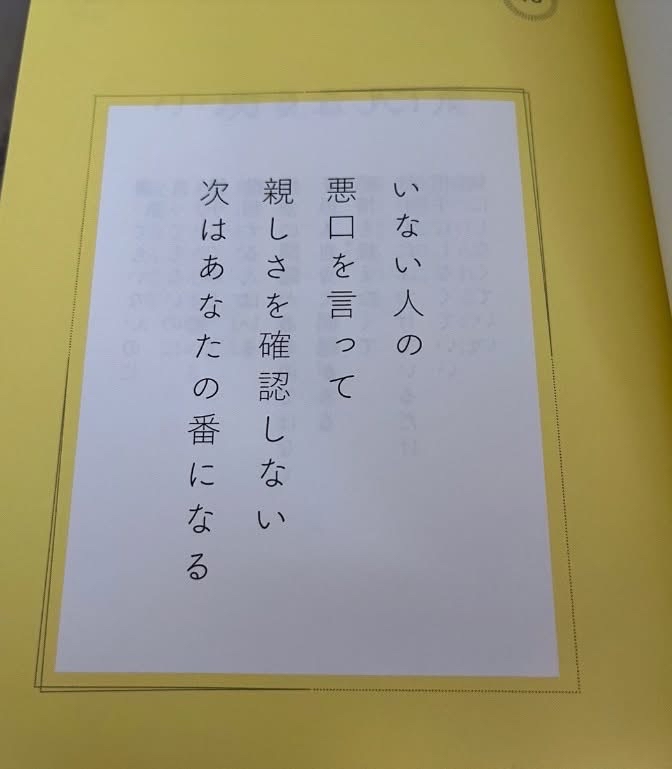 いない人の
悪口を言って
親しさを確認しない
次はあなたの番になる